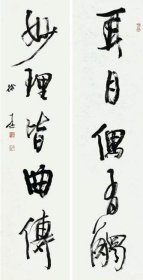 耳目偶有觸
妙理皆曲傳